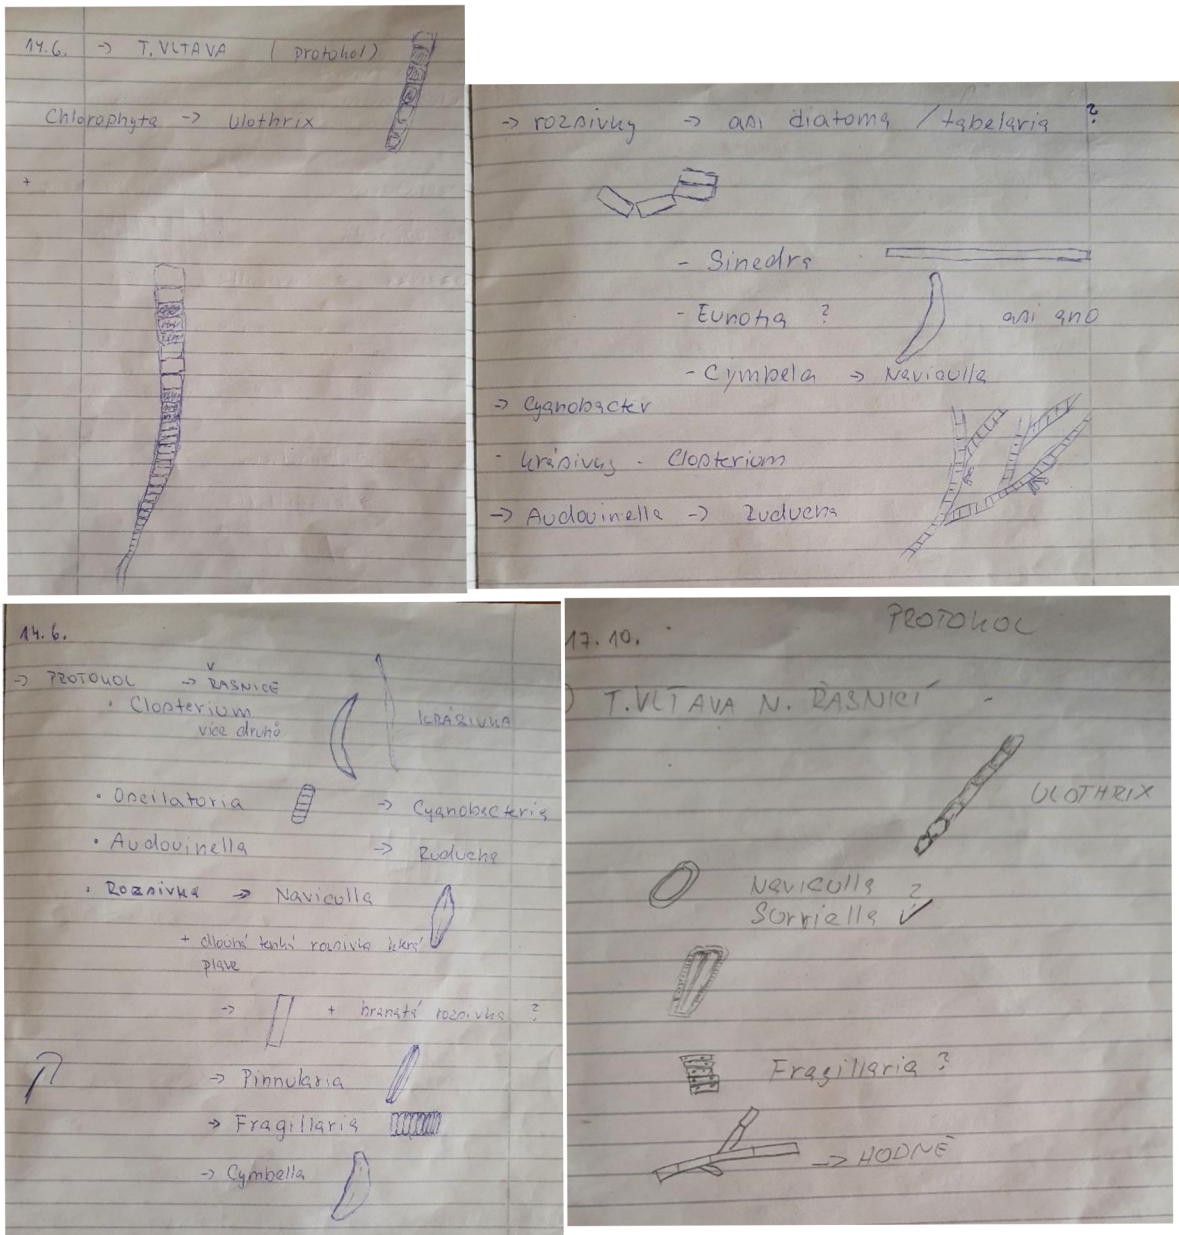 14.6. → T. VLTAVA ( protokol )
Chlorophyta → Ulothrix
+
→ rozsivky → asi diatoma / tabelaria ?
- Sinedra
- Eunotia ? asi ano
- Cymbela → Naviculla
→ Cyanobacter
- krásivky - Closterium
→ Audouinella → Ruducha
14.6.
→ PROTOKOL → V ŘASNICE
• Closterium
více druhů
KRÁSIVKA
• Oscilatoria → Cyanobacteria
• Audouinella → Ruducha
• Rozsivka → Naviculla
+ dlouhá tenká rozsivka která
plave
→ + hranatá rozsivka ?
→ Pinnularia
→ Fragillaria
→ Cymbella
PROTOKOL
17.10.
) T. VLTAVA N. ŘASNICÍ -
ULOTHRIX
Naviculla ?
Surriella ✓
Fragillaria ?
→ HODNĚ